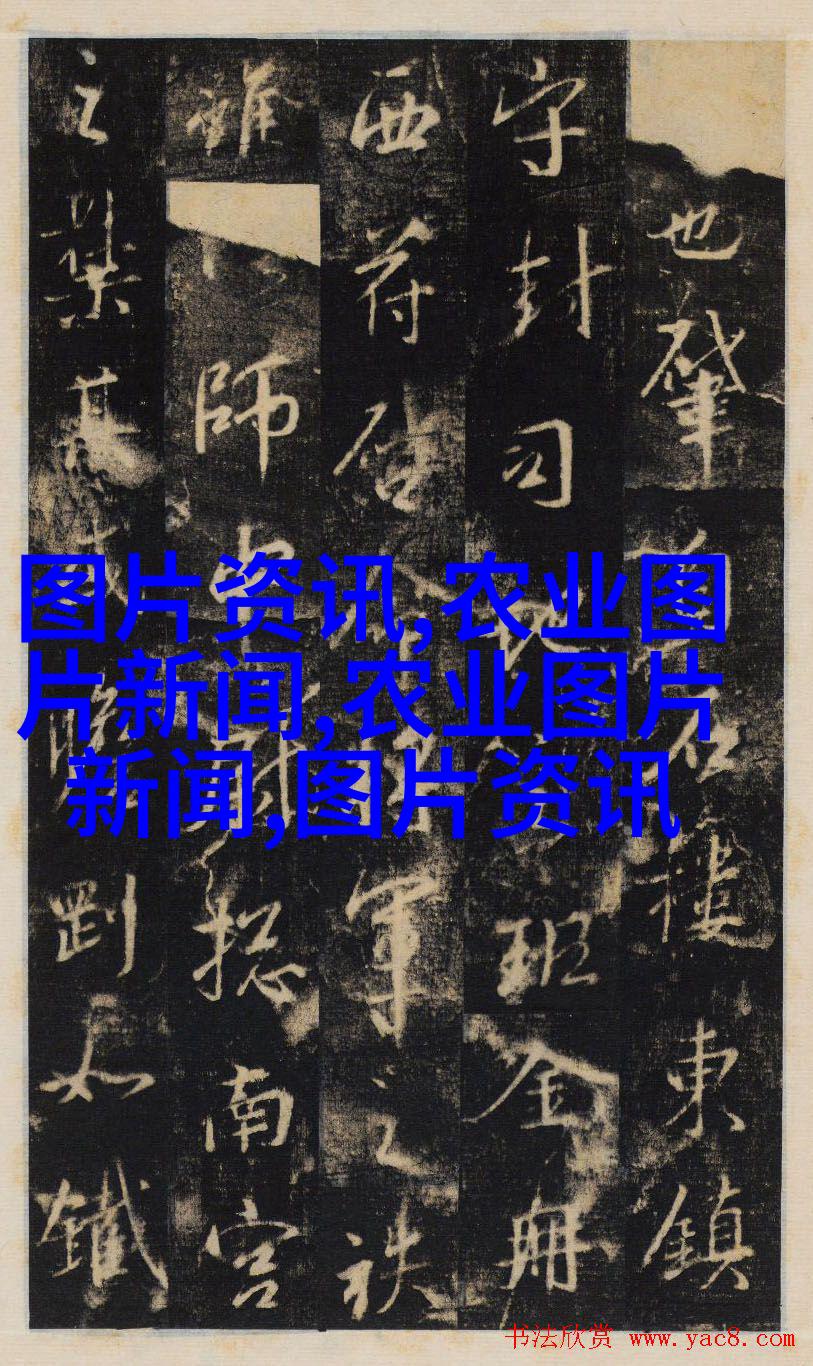 也肇石東鎮
守封司地班金冊
西符啓軍之袟
雖師揔南宮
之集其剛如鐵
图片资讯,农业图
片新闻,农业图片
新闻,图片资讯
书法欣赏 www.yac8.com